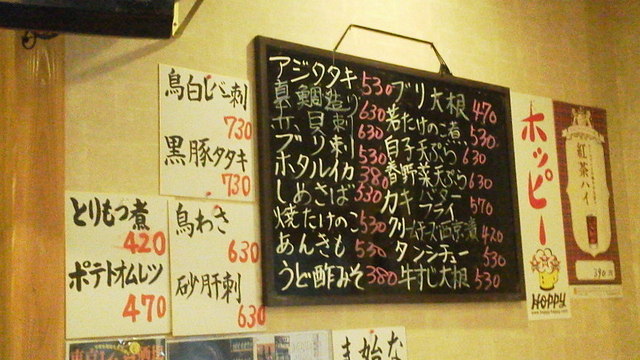 鳥白レバー刺
730
黒豚タタキ
730
とりもつ煮
420
ポテトオムレツ
470
鳥わさ
630
砂肝刺
630
アジタタキ 530
真鯛造り 630
貝刺 630
ブリ刺 530
ホタルイカ 380
しめさば 530
焼たけのこ 530
あんきも 530
うど酢みそ 380
ブリ大根 470
若たけのこ煮 530
白子天ぷら 630
春野菜天ぷら 630
カキ バター フライ 570
クリームチーズ西京漬 420
タンシチュー 530
牛すじ大根 530
ホッピー
HOPPY
紅茶ハイ
390